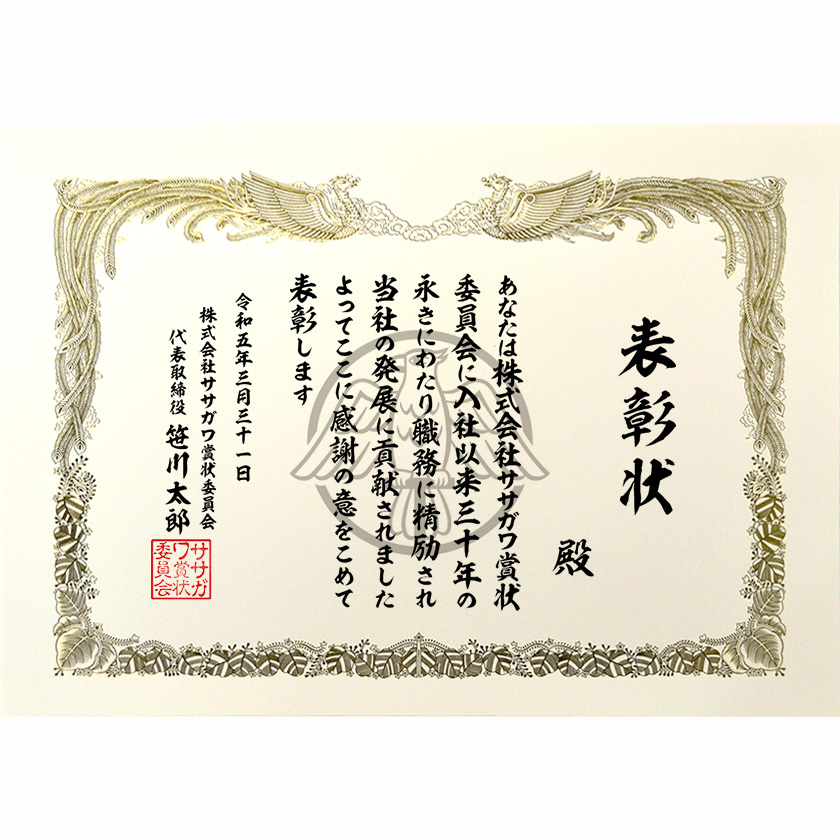 表彰状
殿
あなたは株式会社ササガワ賞状
委員会に入社以来三十年の
永きにわたり職務に精励され
当社の発展に貢献されました
よってここに感謝の意をこめて
表彰します
令和五年三月三十一日
株式会社ササガワ賞状委員会
代表取締役 笹川太郎
ササガ
ワ賞状
委員会